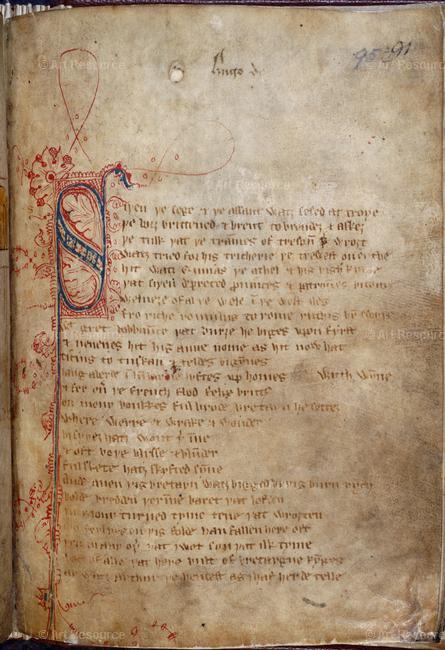 95 91
Hugo de
SIþen þe sege & þe assaut watz sesed at troye
þe borȝ brittened & brent to brondeȝ & askez
þe tulk þat þe trammes of tresoun þ wroȝt
watz tried for his tricherie þe trewest on erthe
hit watz Ennias þe athel & his highe kynde
þat siþen depreced prouinces & patrounes bicome
welneȝe of al þe wele in þe west iles
fro riche romulus to rome ricchis hym swyþe
gret bobbaunce þat burȝe he biges vpon fyrst
& neuenes hit his aune nome as hit now hat
ticius to tuskan & teldes bigynnes
langaberde in lumbardie lyftes vp homes with wynne
& fer ou þe french flod felix brutus
on mony bonkkes ful brode bretayn he settez
where werre & wrake & wonder
bi syþez hatz wont þ inne
& oft boþe blysse & blunder
ful skete hatz skyfted synne
Ande quen þis bretayn watz bigged bi þis burn rych
bolde bredden þerinne baret þat lofden
in mony turned tyme tene þat wroȝten
mo ferlyes on þis folde han fallen here oft
þen in any oþ þat I wot syn þat ilk tyme
bot of alle þat here bult of bretaygne kynges
ay watz arthur þe hendest as I haf herde telle
© Art Resource